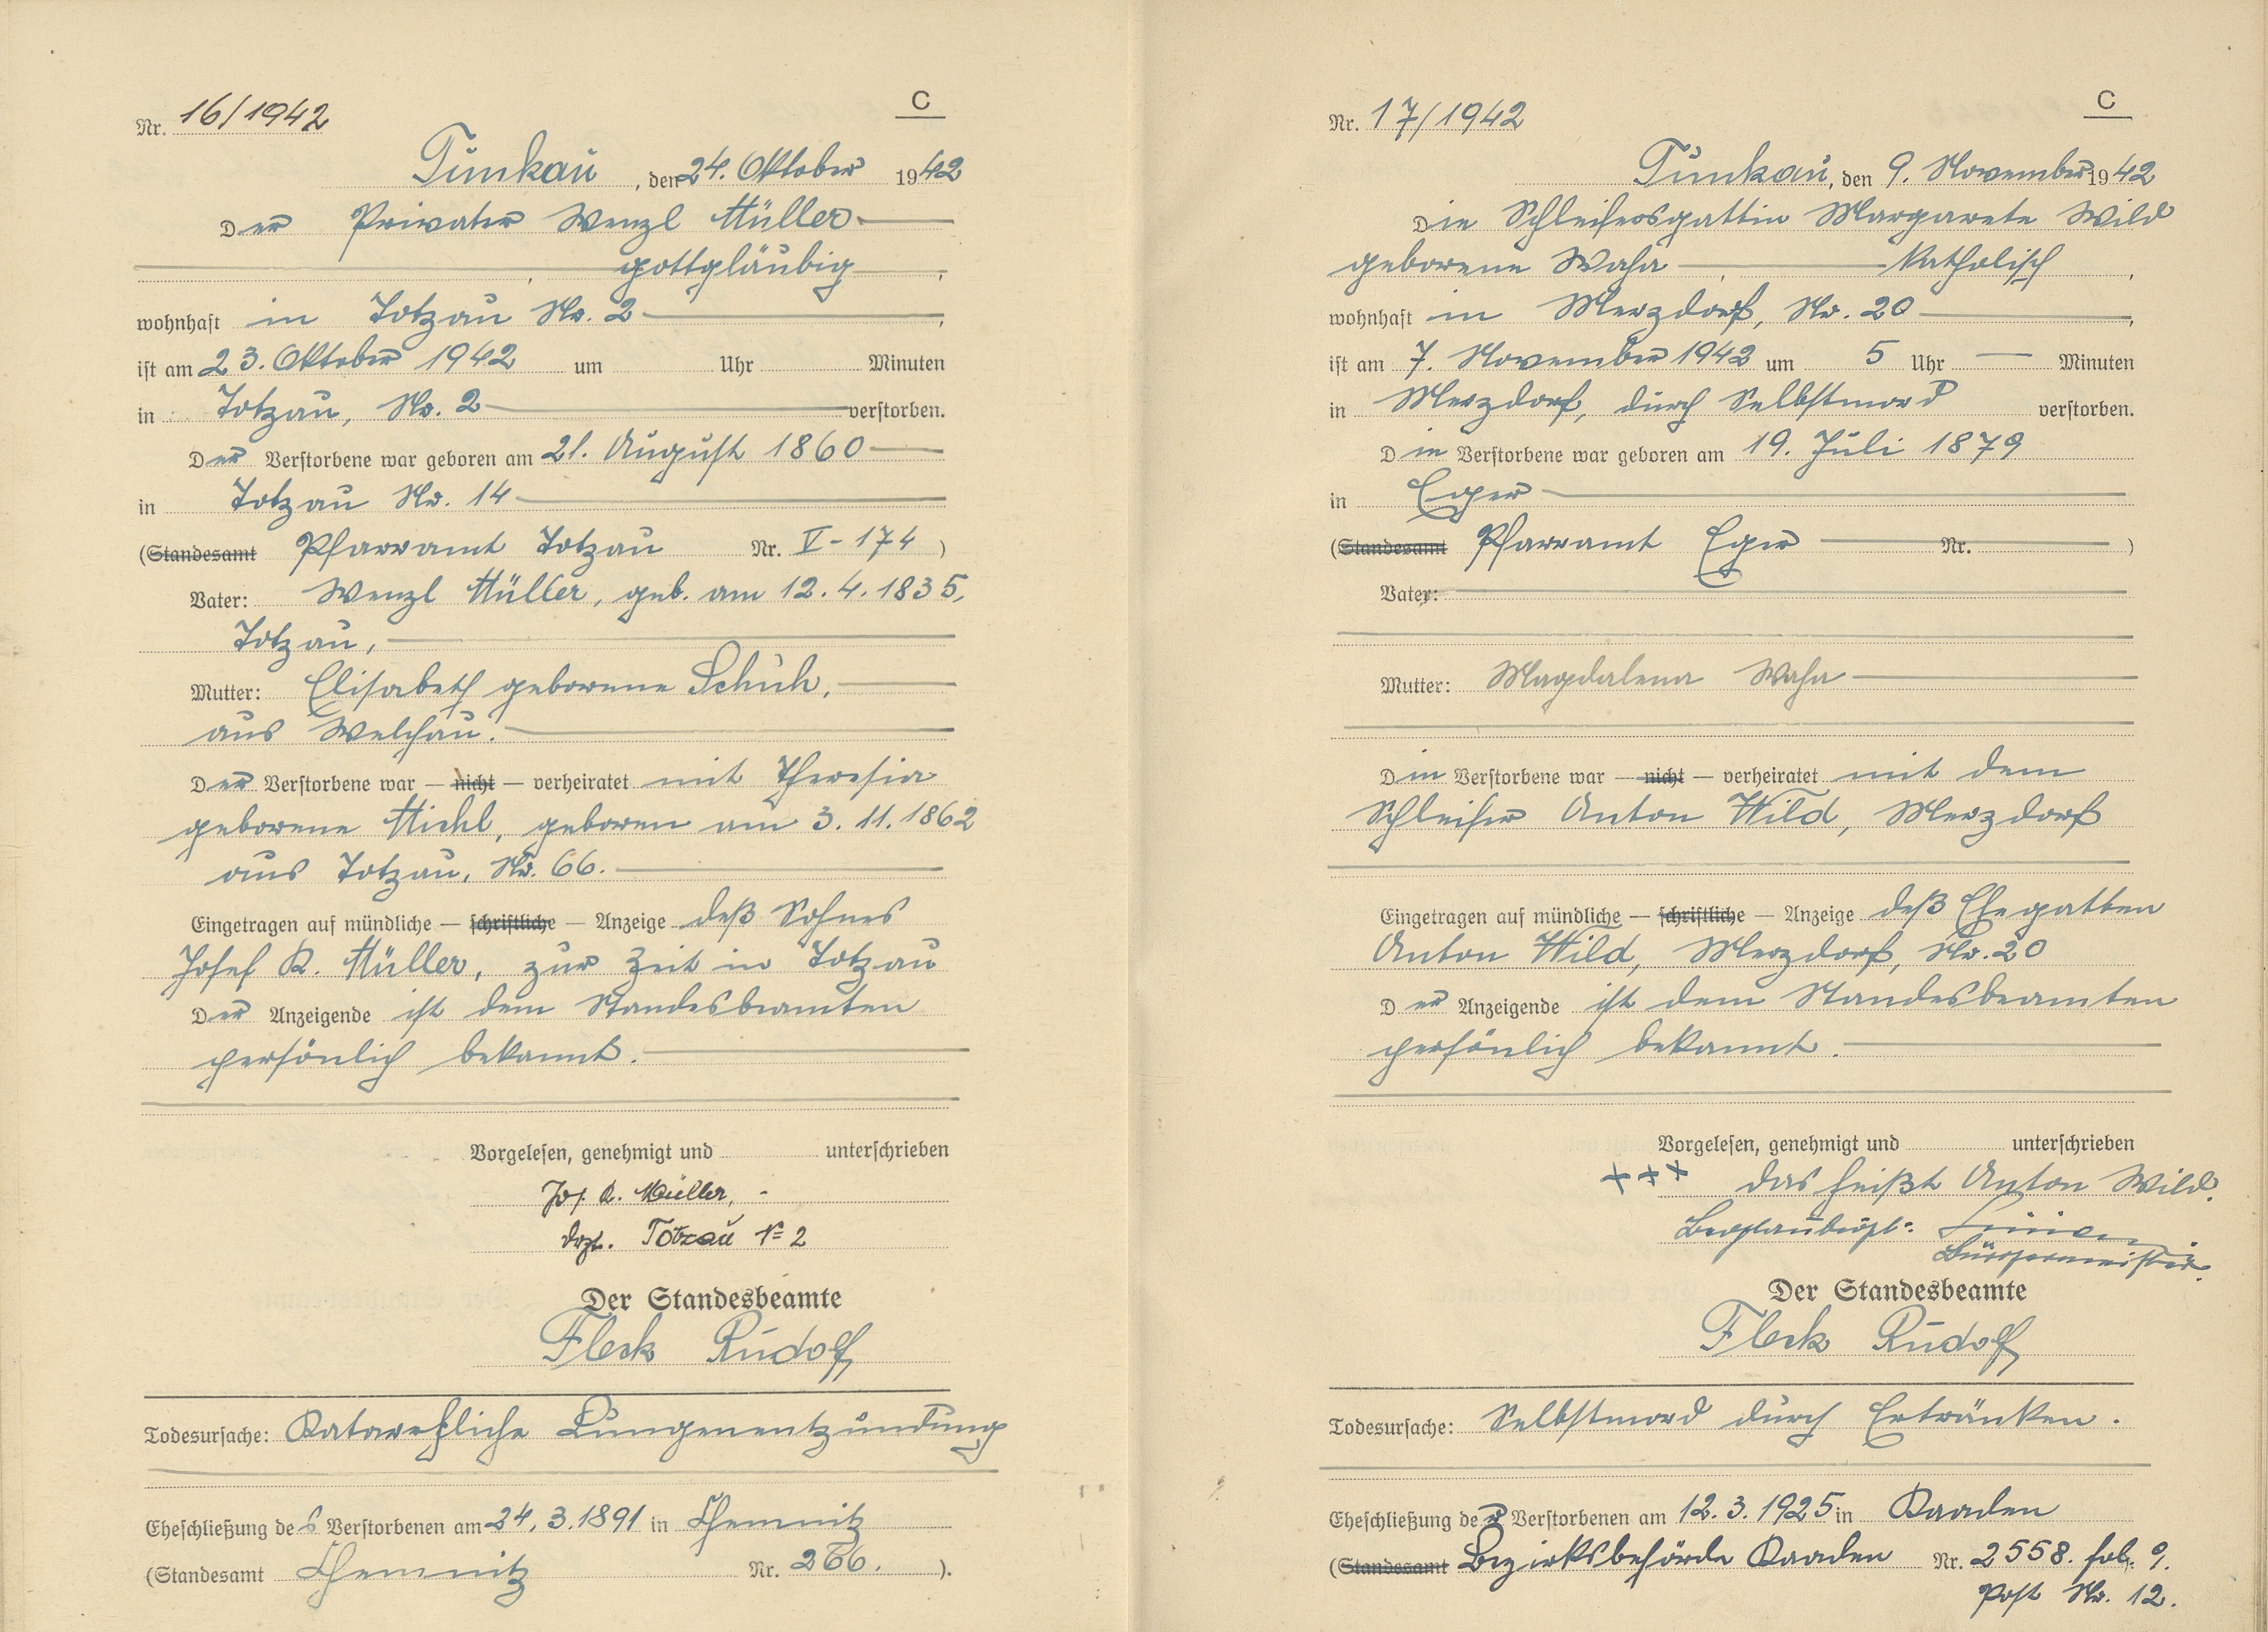 C
Nr. 16/1942
Tunkau, den 24. Oktober 1942
Der Privater Wenzl Müller
gottgläubig,
wohnhaft in Totzau Nr. 2,
ist am 23. Oktober 1942 um Uhr Minuten
in Totzau, Nr. 2 verstorben.
Der Verstorbene war geboren am 21. August 1860
in Totzau Nr. 14
(Standesamt Pfarramt Totzau Nr. V-174)
Vater: Wenzl Müller, geb. am 12.4.1835,
Totzau,
Mutter: Elisabeth geborene Schuh,
aus Welchau.
Der Verstorbene war — nicht — verheiratet mit Theresia
geborene Michl, geboren am 3.11.1862
aus Totzau, Nr. 66.
Eingetragen auf mündliche — schriftliche — Anzeige deß Sohnes
Josef K. Müller, zur Zeit in Totzau
Der Anzeigende ist dem Standesbeamten
persönlich bekannt.
Vorgelesen, genehmigt und unterschrieben
Jos. K. Müller,
dzt. Totzau № 2
Der Standesbeamte
Fleck Rudolf
Todesursache: Katarrhliche Lungenentzündung
Eheschließung des Verstorbenen am 24.3.1891 in Chemnitz
(Standesamt Chemnitz Nr. 266.).
C
Nr. 17/1942
Tunkau, den 9. November 1942
Die Schleifersgattin Margarete Wild
geborene Waha, katholisch,
wohnhaft in Merzdorf, Nr. 20,
ist am 7. November 1942 um 5 Uhr — Minuten
in Merzdorf, durch Selbstmord verstorben.
Die Verstorbene war geboren am 19. Juli 1879
in Eger
(Standesamt Pfarramt Eger Nr. )
Vater:
Mutter: Magdalena Waha
Die Verstorbene war — nicht — verheiratet mit dem
Schleifer Anton Wild, Merzdorf
Eingetragen auf mündliche — schriftliche — Anzeige deß Ehegatten
Anton Wild, Merzdorf, Nr. 20
Der Anzeigende ist dem Standesbeamten
persönlich bekannt.
Vorgelesen, genehmigt und unterschrieben
+++ das heißt Anton Wild.
Beglaubigt:
Bürgermeister.
Der Standesbeamte
Fleck Rudolf
Todesursache: Selbstmord durch Ertränken.
Eheschließung der Verstorbenen am 12.3.1925 in Kaaden
(Standesamt Bezirksbehörde Kaaden Nr. 2558. fol. 9.
Post Nr. 12.